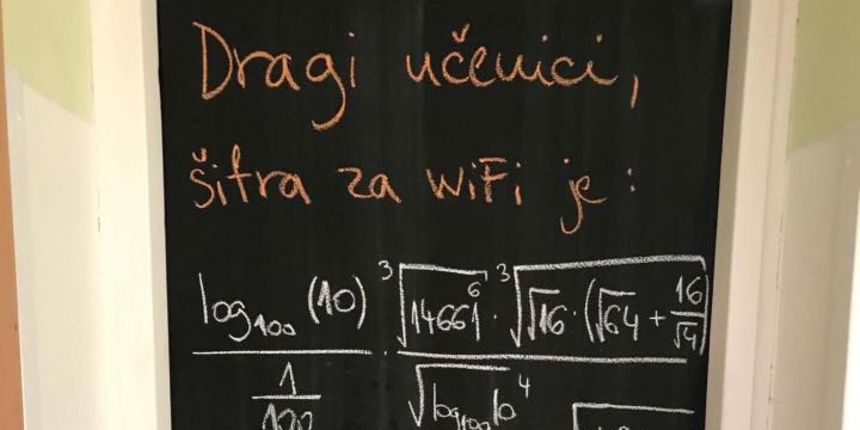 Dragi učenici,
šifra za WiFi je:
log₁₀₀(10) ∛14661⁶ · ∛√16 · (√64 + 16/√4)
1/100 · √log₁₀₀10⁴